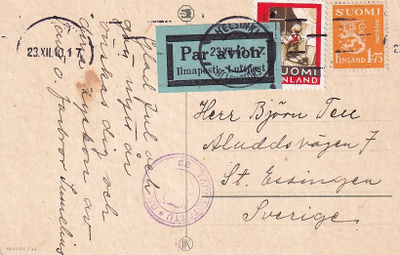 Glad Jul och
gott nytt år
önskas dig och
dina syskon av
farbror Sumelius
23.XII.40.17
Par avion
Ilmaposti - Luftpost
HELSINKI
23.XII.40.17
SUOMI
FINLAND
SUOMI
FINLAND 1:75
Herr Björn
Aluddsvägen 7
St. Essingen
Sverige.